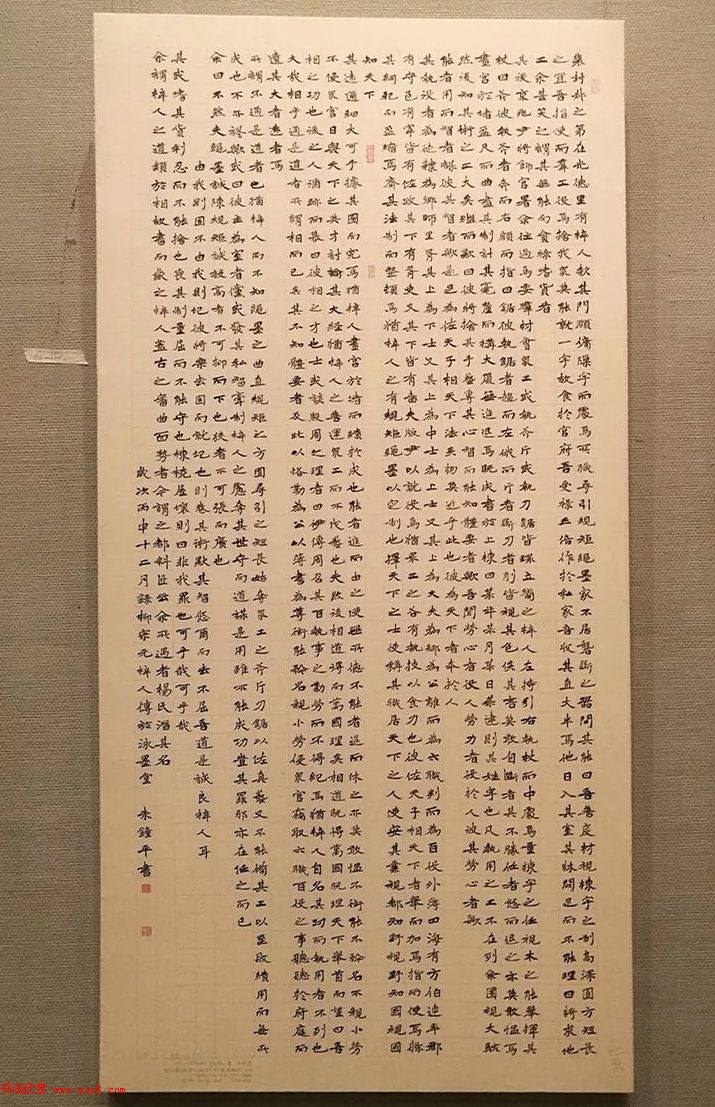 裴封叔之第在光德里有梓人款其門願傭隙宇而處焉所職尋引規矩繩墨家不居礱斲之器問其能曰吾善度材視棟宇之制高深圓方短長
之宜吾指使而群工役焉捨我眾莫能就一宇故食於官府吾受祿三倍作於私家吾收其直大半焉他日入其室其牀闕足而不能理曰將求他
工余甚笑之謂其無能而貪祿嗜貨者
其後京兆尹將飾官署余往過焉委群材會眾工或執斧斤或執刀鋸皆環立嚮之梓人左持引右執杖而中處焉量棟宇之任視木之能舉揮其
杖曰斧彼執斧者奔而右顧而指曰鋸彼執鋸者趨而左俄而斤者斲刀者削皆視其色俟其言莫敢自斷者其不勝任者怒而退之亦莫敢慍焉
畫宮於堵盈尺而曲盡其制計其毫釐而構大廈無進退焉既成書於上棟曰某年某月某日某建則其姓字也凡執用之工不在列余圜視大駭
然後知其術之工大矣繼而歎曰彼將捨其手藝專其心智而能知體要者歟吾聞勞心者役人勞力者役於人彼其勞心者歟
能者用而智者謀彼其智者歟是足為佐天子相天下法矣物莫近乎此也彼為天下者本於人
其執役者為徒隸為鄉師里胥其上為下士又其上為中士為上士又其上為大夫為卿為公離而為六職判而為百役外薄四海有方伯連率郡
有守邑有宰皆有佐政其下有胥吏又其下皆有嗇夫版尹以就役焉猶眾工之各有執技以食力也彼佐天子相天下者舉而加焉指而使焉條
其綱紀而盈縮焉齊其法制而整頓焉猶梓人之有規矩繩墨以定制也擇天下之士使稱其職居天下之人使安其業視都知野視野知國視國
知天下
其遠邇細大可手據其圖而究焉猶梓人畫宮於堵而績於成也能者進而由之使無所德不能者退而休之亦莫敢慍不衒能不矜名不親小勞
不侵眾官日與天下之英才討論其大經猶梓人之善運眾工而不伐藝也夫然後相道得而萬國理矣相道既得萬國既理天下舉首而望曰吾
相之功也後之人循跡而慕曰彼相之才也士或談殷周之理者曰伊傅周召其百執事之勤勞而不得紀焉猶梓人自名其功而執用者不列也
大哉相乎通是道者所謂相而已矣其不知體要者反此以恪勤為公以簿書為尊衒能矜名親小勞侵眾官竊取六職百役之事聽聽於府庭而
遺其大者遠者焉
所謂不通是道者也猶梓人而不知繩墨之曲直規矩之方圓尋引之短長姑奪眾工之斧斤刀鋸以佐其藝又不能備其工以至敗績用而無所
成也不亦謬歟或曰彼主為室者儻或發其私智牽制梓人之慮奪其世守而道謀是用雖不能成功豈其罪邪亦在任之而已
余曰不然夫繩墨誠陳規矩誠設高者不可抑而下也狹者不可張而廣也
由我則固不由我則圮彼將樂去固而就圮也則卷其術默其智悠爾而去不屈吾道是誠良梓人耳
其或嗜其貨利忍而不能捨也喪其制量屈而不能守也棟橈屋壞則曰非我罪也可乎哉可乎哉
余謂梓人之道類於相故書而藏之梓人蓋古之審曲面勢者今謂之都料匠云余所遇者楊氏潛其名
歲次丙申十二月錄柳宗元梓人傳於泳墨堂 朱鐘平書